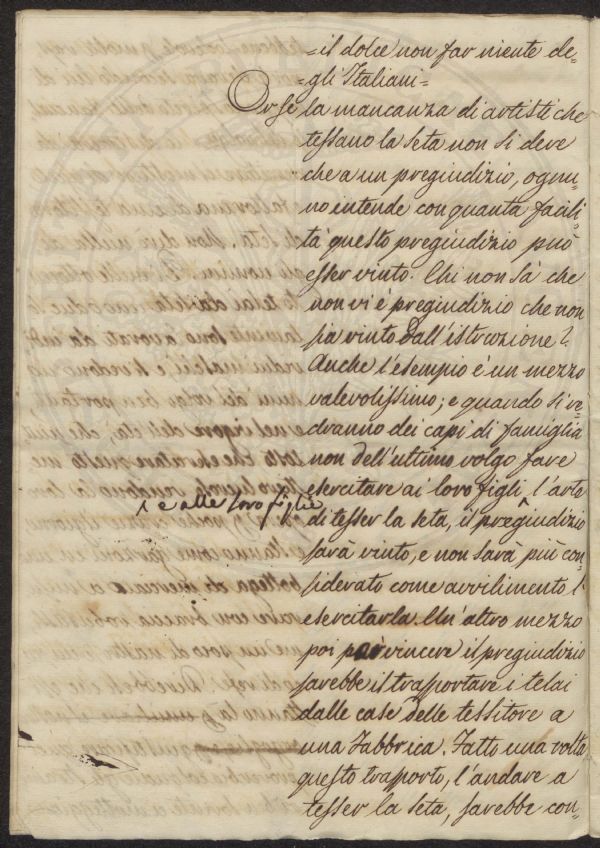 =il dolce non far niente de=
gli Italiani=
Or se la mancanza di artisti che
tessano la seta non si deve
che a un pregiudizio, ognu=
no intende con quanta facili
tà questo pregiudizio può
esser vinto. Chi non sà che
non vi è pregiudizio che non
sia vinto dall'istruzione?
Anche l'esempio è un mezzo
valevolissimo; e quando si ve=
dranno dei capi di famiglia
non dell'ultimo volgo fare
esercitare ai loro figli l'arte
^ e alle loro figlie
di tesser la seta, il pregiudizio
sarà vinto, e non sarà più con=
siderato come avvilimento l'
esercitarla. Un'altro mezzo
poi par vincere il pregiudizio
sarebbe il trasportare i telai
dalle case delle tessitore a
una Fabbrica. Fatto una volta
questo trasporto, l'andare a
tesser la seta, sarebbe con=